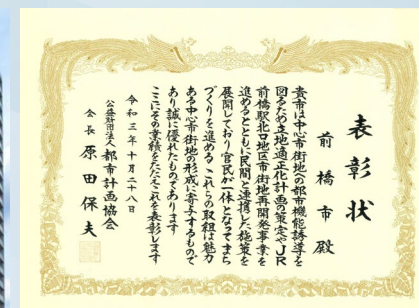 表彰状
前橋市殿
貴市は中心市街地への都市機能誘導を
図るため立地適正化計画の策定やJR
前橋駅北口地区市街地再開発事業を
進めるとともに民間と連携した施策を
展開しており官民が一体となってまち
づくりを進めるこれらの取組は魅力
ある中心市街地の形成に寄与するもので
あり誠に優れたものであります
ここにその業績をたたえこれを表彰します
令和三年十月二十八日
公益財団法人都市計画協会
会長 原田保夫